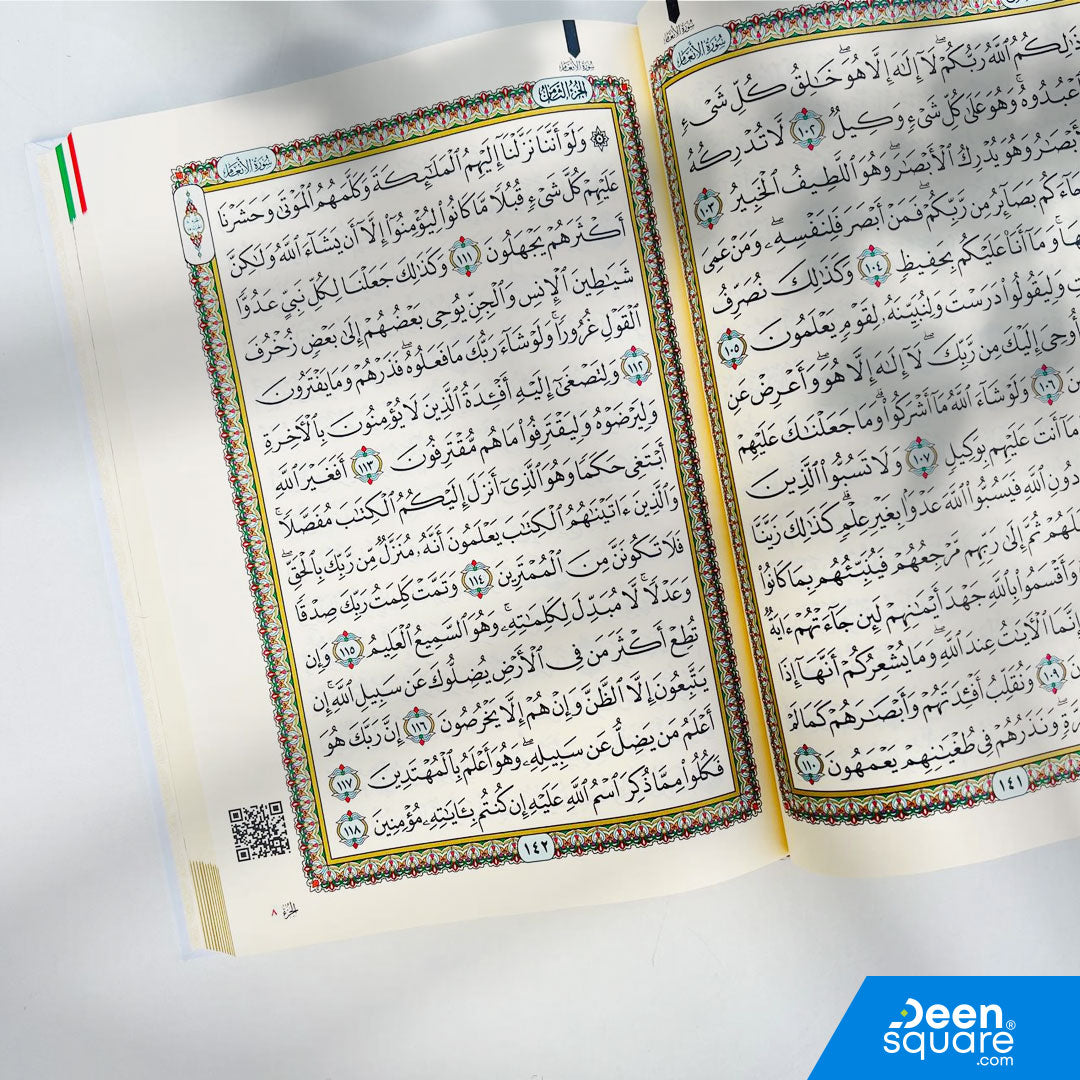 سُورَةُ الأَنْعَامِ
سُورَةُ الأَنْعَامِ
ذَٰلِكُمُ ٱللَّهُ رَبُّكُمْ ۖ لَآ إِلَٰهَ إِلَّا هُوَ ۖ خَٰلِقُ كُلِّ شَىْءٍ
عْبُدُوهُ ۚ وَهُوَ عَلَىٰ كُلِّ شَىْءٍ وَكِيلٌ ١٠٢ لَّا تُدْرِكُهُ
أَبْصَٰرُ وَهُوَ يُدْرِكُ ٱلْأَبْصَٰرَ ۖ وَهُوَ ٱللَّطِيفُ ٱلْخَبِيرُ ١٠٣
جَآءَكُم بَصَآئِرُ مِن رَّبِّكُمْ ۖ فَمَنْ أَبْصَرَ فَلِنَفْسِهِۦ ۖ وَمَنْ عَمِىَ
هَا ۚ وَمَآ أَنَا۠ عَلَيْكُم بِحَفِيظٍ ١٠٤ وَكَذَٰلِكَ نُصَرِّفُ
وَلِيَقُولُوا۟ دَرَسْتَ وَلِنُبَيِّنَهُۥ لِقَوْمٍ يَعْلَمُونَ ١٠٥
أُوحِىَ إِلَيْكَ مِن رَّبِّكَ ۖ لَآ إِلَٰهَ إِلَّا هُوَ ۖ وَأَعْرِضْ عَنِ
١٠٦ وَلَوْ شَآءَ ٱللَّهُ مَآ أَشْرَكُوا۟ ۗ وَمَا جَعَلْنَٰكَ عَلَيْهِمْ
مَآ أَنتَ عَلَيْهِم بِوَكِيلٍ ١٠٧ وَلَا تَسُبُّوا۟ ٱلَّذِينَ
دُونِ ٱللَّهِ فَيَسُبُّوا۟ ٱللَّهَ عَدْوًۢا بِغَيْرِ عِلْمٍ ۗ كَذَٰلِكَ زَيَّنَّا
لَهُمْ ثُمَّ إِلَىٰ رَبِّهِم مَّرْجِعُهُمْ فَيُنَبِّئُهُم بِمَا كَانُوا۟
وَأَقْسَمُوا۟ بِٱللَّهِ جَهْدَ أَيْمَٰنِهِمْ لَئِن جَآءَتْهُمْ ءَايَةٌ
إِنَّمَا ٱلْـَٔايَٰتُ عِندَ ٱللَّهِ ۖ وَمَا يُشْعِرُكُمْ أَنَّهَآ إِذَا
١٠٩ وَنُقَلِّبُ أَفْـِٔدَتَهُمْ وَأَبْصَٰرَهُمْ كَمَا لَمْ
وَنَذَرُهُمْ فِى طُغْيَٰنِهِمْ يَعْمَهُونَ ١١٠
١٤١
سُورَةُ الأَنْعَامِ
الجُزْءُ الثَّامِنُ
سُورَةُ الأَنْعَامِ
۞ وَلَوْ أَنَّنَا نَزَّلْنَآ إِلَيْهِمُ ٱلْمَلَٰٓئِكَةَ وَكَلَّمَهُمُ ٱلْمَوْتَىٰ وَحَشَرْنَا
عَلَيْهِمْ كُلَّ شَىْءٍ قُبُلًا مَّا كَانُوا۟ لِيُؤْمِنُوٓا۟ إِلَّآ أَن يَشَآءَ ٱللَّهُ وَلَٰكِنَّ
أَكْثَرَهُمْ يَجْهَلُونَ ١١١ وَكَذَٰلِكَ جَعَلْنَا لِكُلِّ نَبِىٍّ عَدُوًّا
شَيَٰطِينَ ٱلْإِنسِ وَٱلْجِنِّ يُوحِى بَعْضُهُمْ إِلَىٰ بَعْضٍ زُخْرُفَ
ٱلْقَوْلِ غُرُورًا ۚ وَلَوْ شَآءَ رَبُّكَ مَا فَعَلُوهُ ۖ فَذَرْهُمْ وَمَا يَفْتَرُونَ
١١٢ وَلِتَصْغَىٰٓ إِلَيْهِ أَفْـِٔدَةُ ٱلَّذِينَ لَا يُؤْمِنُونَ بِٱلْـَٔاخِرَةِ
وَلِيَرْضَوْهُ وَلِيَقْتَرِفُوا۟ مَا هُم مُّقْتَرِفُونَ ١١٣ أَفَغَيْرَ ٱللَّهِ
أَبْتَغِى حَكَمًا وَهُوَ ٱلَّذِىٓ أَنزَلَ إِلَيْكُمُ ٱلْكِتَٰبَ مُفَصَّلًا ۚ
وَٱلَّذِينَ ءَاتَيْنَٰهُمُ ٱلْكِتَٰبَ يَعْلَمُونَ أَنَّهُۥ مُنَزَّلٌ مِّن رَّبِّكَ بِٱلْحَقِّ ۖ
فَلَا تَكُونَنَّ مِنَ ٱلْمُمْتَرِينَ ١١٤ وَتَمَّتْ كَلِمَتُ رَبِّكَ صِدْقًا
وَعَدْلًا ۚ لَّا مُبَدِّلَ لِكَلِمَٰتِهِۦ ۚ وَهُوَ ٱلسَّمِيعُ ٱلْعَلِيمُ ١١٥ وَإِن
تُطِعْ أَكْثَرَ مَن فِى ٱلْأَرْضِ يُضِلُّوكَ عَن سَبِيلِ ٱللَّهِ ۚ إِن
يَتَّبِعُونَ إِلَّا ٱلظَّنَّ وَإِنْ هُمْ إِلَّا يَخْرُصُونَ ١١٦ إِنَّ رَبَّكَ هُوَ
أَعْلَمُ مَن يَضِلُّ عَن سَبِيلِهِۦ ۖ وَهُوَ أَعْلَمُ بِٱلْمُهْتَدِينَ ١١٧
فَكُلُوا۟ مِمَّا ذُكِرَ ٱسْمُ ٱللَّهِ عَلَيْهِ إِن كُنتُم بِـَٔايَٰتِهِۦ مُؤْمِنِينَ ١١٨
١٤٢
الجُزْءُ ٨
Deen
square®
.com